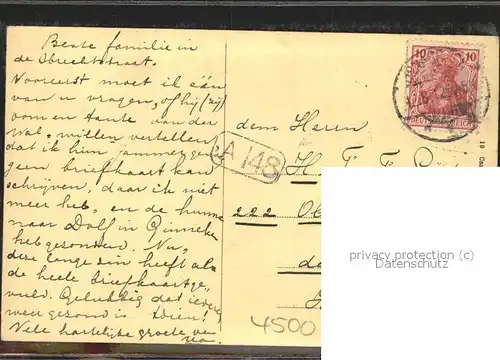 Beste familie in
de Obrechtstraat.
Vooreerst moet ik één
van u vragen, of hij (zij)
oom en tante van der
Wal, willen vertellen
dat ik hun jammer ge-
geen briefkaart kan
schrijven, daar ik niet
meer heb, en de hunne
naar Dolf in Ginneken
heb gezonden. Nu,
deze lange zin heeft als
de heele briefkaart ge-
vuld. Gelukkig dat iedereen
weer gezond is
Vele hartelijke groete van
A 148
dem Herrn
H.
222
4500
10 10
DEUTSCHES REICH
privacy protection (c)
Datenschutz